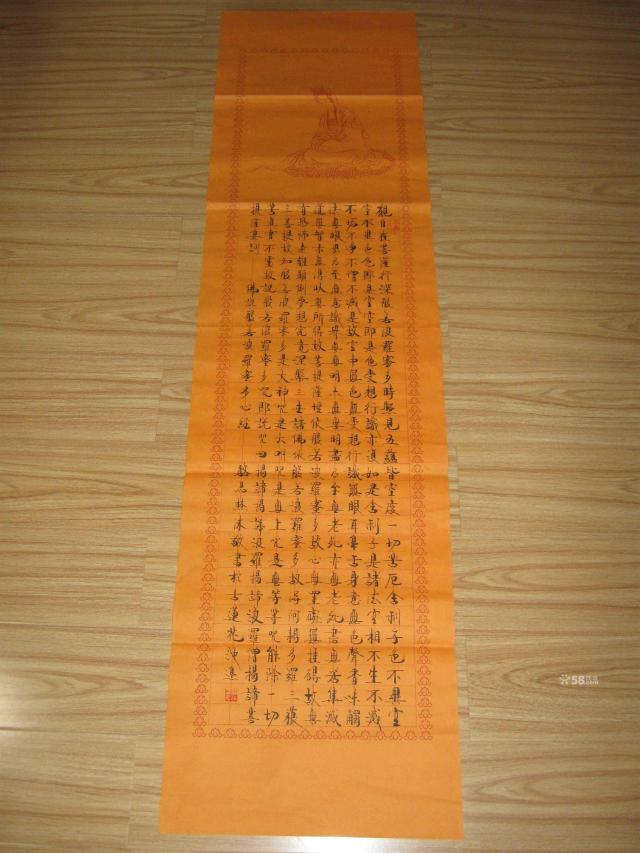 觀自在菩薩行深般若波羅蜜多時照見五蘊皆空度一切苦厄舍利子色不異空
空不異色色即是空空即是色受想行識亦復如是舍利子是諸法空相不生不滅
不垢不淨不增不減是故空中無色無受想行識無眼耳鼻舌身意無色聲香味觸
法無眼界乃至無意識界無無明亦無無明盡乃至無老死亦無老死盡無苦集滅
道無智亦無得以無所得故菩提薩埵依般若波羅蜜多故心無罣礙無罣礙故無
有恐怖遠離顛倒夢想究竟涅槃三世諸佛依般若波羅蜜多故得阿耨多羅三藐
三菩提故知般若波羅蜜多是大神咒是大明咒是無上咒是無等等咒能除一切
苦真實不虛故說般若波羅蜜多咒即說咒曰揭諦揭諦波羅揭諦波羅僧揭諦菩
提薩婆訶 佛說般若波羅蜜多心經 敬書於古蓮花池邊
58